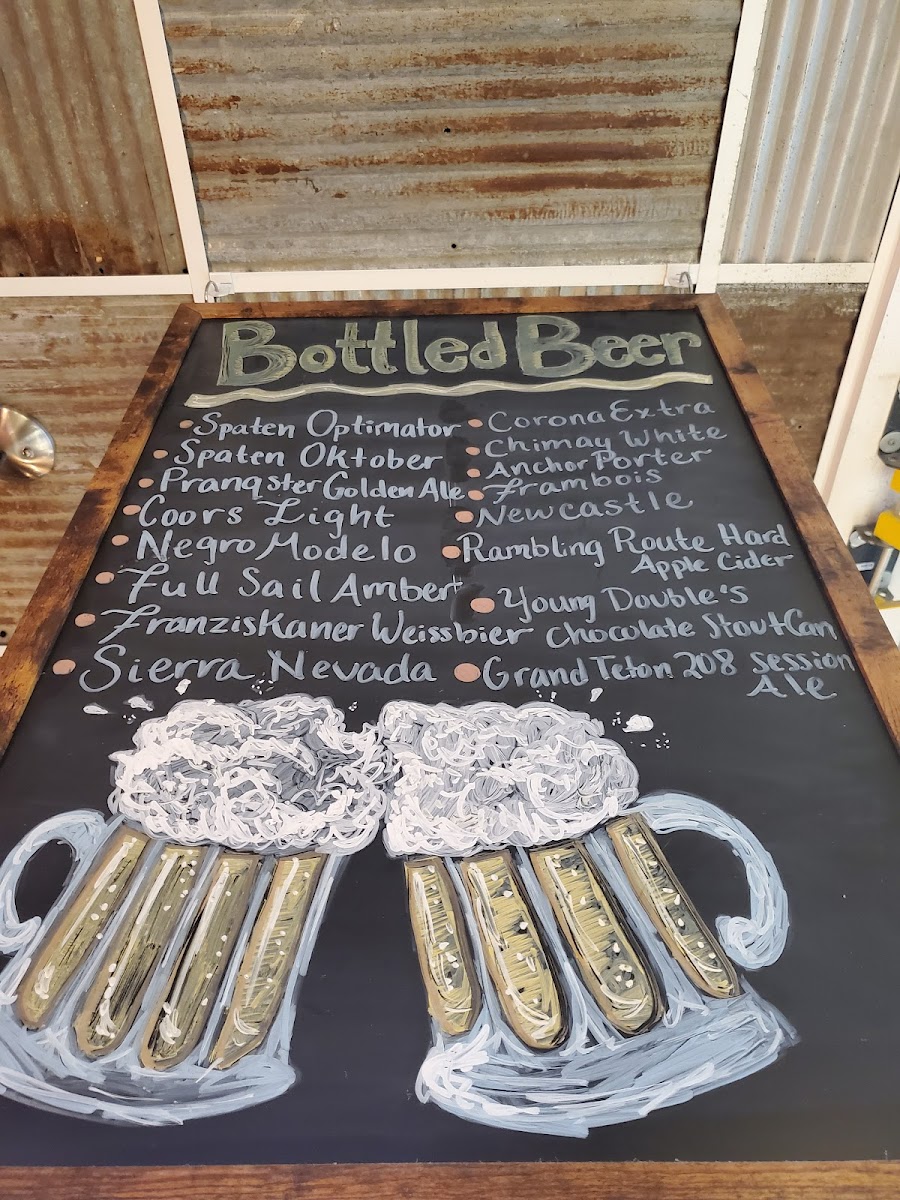 Bottled Beer
Spaten Optimator
Spaten Oktober
Pranqster Golden Ale
Coors Light
Negro Modelo
Full Sail Amber
Franziskaner Weissbier
Sierra Nevada
Corona Extra
Chimay White
Anchor Porter
Frambois
Newcastle
Rambling Route Hard
Apple Cider
Young Double's
Chocolate Stout Can
Grand Teton 208 Session
Ale